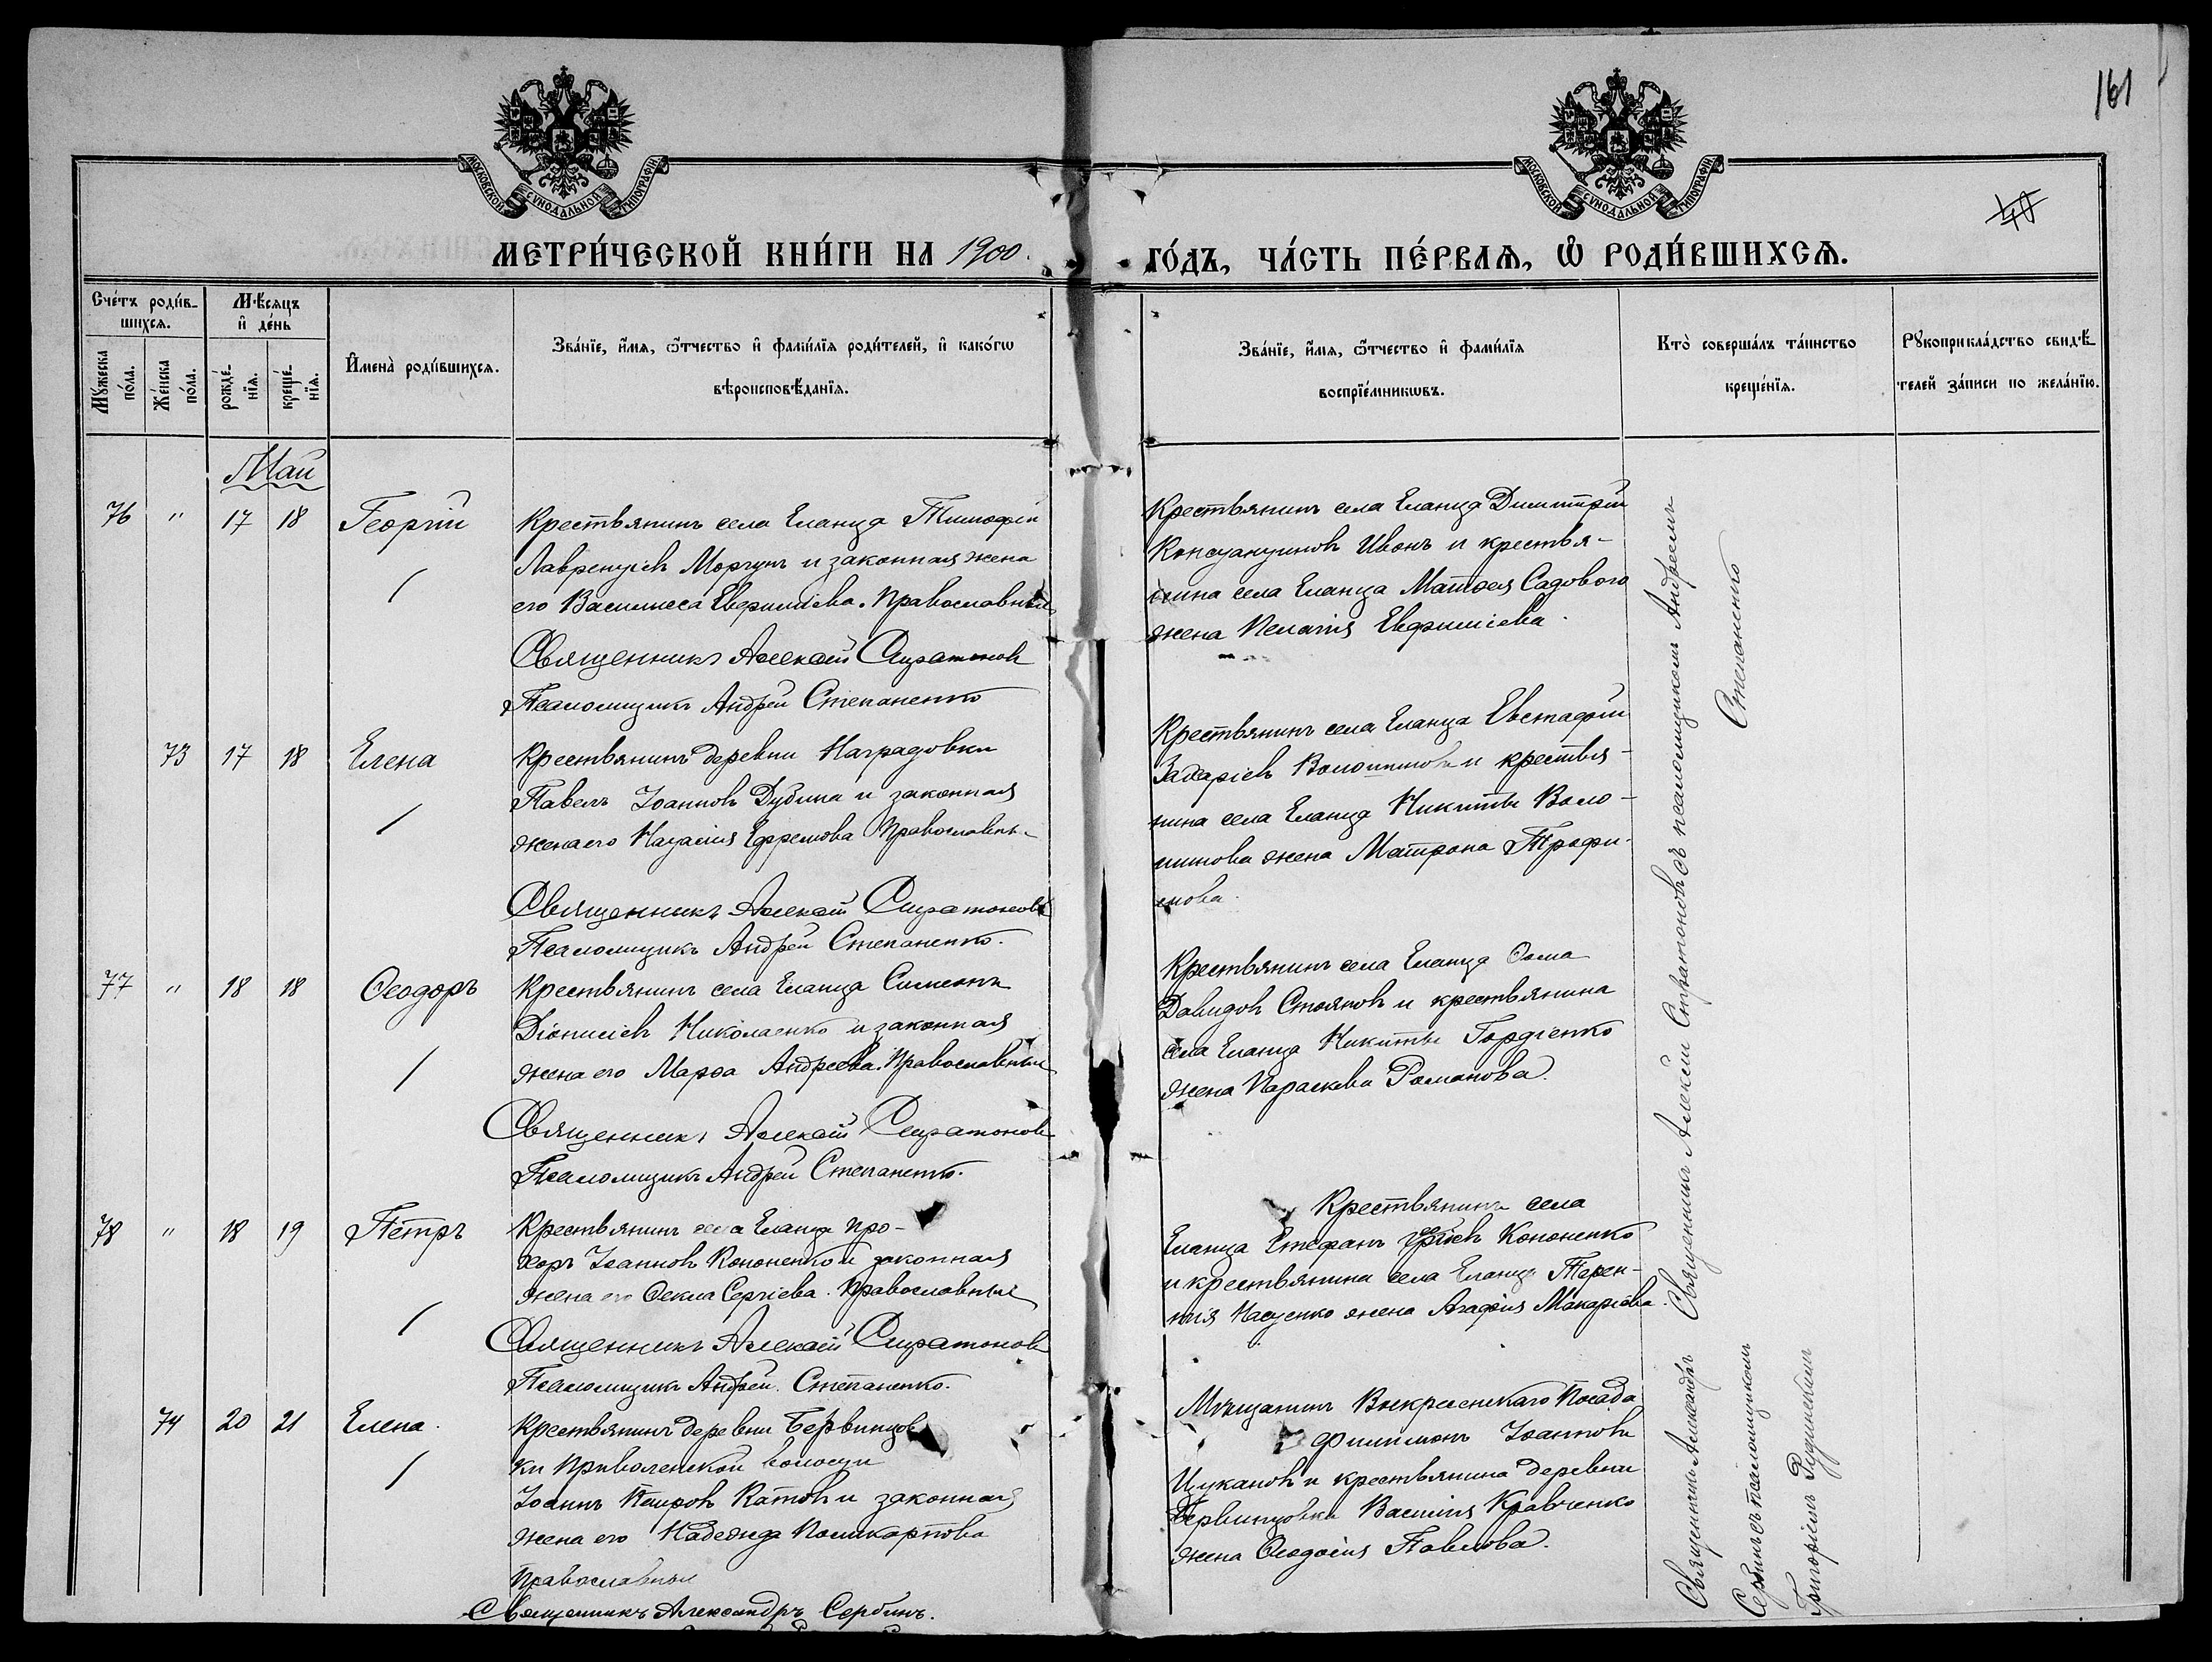 161
40
МОСКОВСКОЙ СѴНОДАЛЬНОЙ ТИПОГРАФІИ
МОСКОВСКОЙ СѴНОДАЛЬНОЙ ТИПОГРАФІИ
МЕТРИ́ЧЕСКОЙ КНИ́ГИ НА 1900. ГО́ДЪ, ЧА́СТЬ ПЕ́РВАѦ, Ѡ҆ РОДИ́ВШИХСѦ.
Сче́тъ роди́в-
шихсѧ.
Мꙋ́жеска по́ла.
Же́нска по́ла.
Мѣ́сѧцъ
и҆ де́нь
рожде́-
нїѧ.
креще́-
нїѧ.
И҆мена̀ роди́вшихсѧ.
Зва́нїе, и҆́мѧ, ѻ҆́тчество и҆ фами́лїѧ роди́телей, и҆ како́гѡ
вѣроисповѣ́данїѧ.
Зва́нїе, и҆́мѧ, ѻ҆́тчество и҆ фами́лїѧ
воспрїе́мникѡвъ.
Кто̀ соверша́лъ та́инство
креще́нїѧ.
Рꙋкоприкла́дство свидѣ́-
телей за́писи по жела́нїю.
Май
76 " 17 18 Георгій
Крестьянинъ села Еланца Тимофей
Лаврентіевъ Моргунъ и законная жена
его Василисса Евфиміева. Православные
Священникъ Алексій Стратоновъ
Псаломщикъ Андрей Степаненко
Крестьянинъ села Еланца Димитрій
Константиновъ Ивонъ и крестья-
нина села Еланца Матѳея Садового
жена Пелагія Евфиміева.
73 17 18 Елена
Крестьянинъ деревни Наградовки
Павелъ Іоанновъ Дубина и законная
жена его Наталія Ефремова Православны
Священникъ Алексій Стратоновъ
Псаломщикъ Андрей Степаненко.
Крестьянинъ села Еланца Евстафій
Захаріевъ Волошиновъ и крестья-
нина села Еланца Никиты Воло-
шинова жена Матрона Трофи-
мова.
77 " 18 18 Ѳеодоръ
Крестьянинъ села Еланца Симеонъ
Діонисіевъ Николаенко и законная
жена его Марѳа Андреева. Православные
Священникъ Алексій Стратоновъ
Псаломщикъ Андрей Степаненко.
Крестьянинъ села Еланца Ѳома
Давидовъ Стояновъ и крестьянина
села Еланца Никиты Гордіенко
жена Параскева Романова.
78 " 18 19 Петръ
Крестьянинъ села Еланца Про-
хоръ Іоанновъ Кононенко и законная
жена его Ѳекла Сергіева. Православные
Священникъ Алексій Стратоновъ
Псаломщикъ Андрей Степаненко.
Крестьянинъ села
Еланца Стефанъ Кононенко
и крестьянина села Еланца Терен-
тія жена Агафія Макаріева.
74 20 21 Елена.
Крестьянинъ деревни Бервинцов
ки Привольнской волости
Іоаннъ Петровъ Катовъ и законная
жена его Надежда Поликарпова
Православные
Священникъ Александръ Сербинъ.
Мѣщанинъ Воскресенскаго Посада
Филимонъ Іоанновъ
Цукановъ и крестьянина деревни
Бервинцовки Василія Кравченко
жена Ѳеодосія Павлова.
Священникъ Алексій Стратоновъ съ псаломщикомъ Андреемъ
Степаненко
Священникъ Александръ
Сербинъ съ псаломщикомъ
Григоріемъ